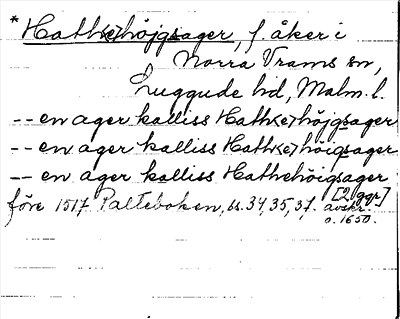 *Hathk(e)höjgsager, f. åker i
Norra Vrams sn,
Luggude hd, Malm. l.
-- en ager kalliss Hathk(e)höjgsager
-- en ager kalliss Hathk(e)höigsager
-- en ager kalliss Hathehöigsager
[2 ggr]
före 1517 Palteboken, ss. 34, 35, 37. avskr.
o. 1650.